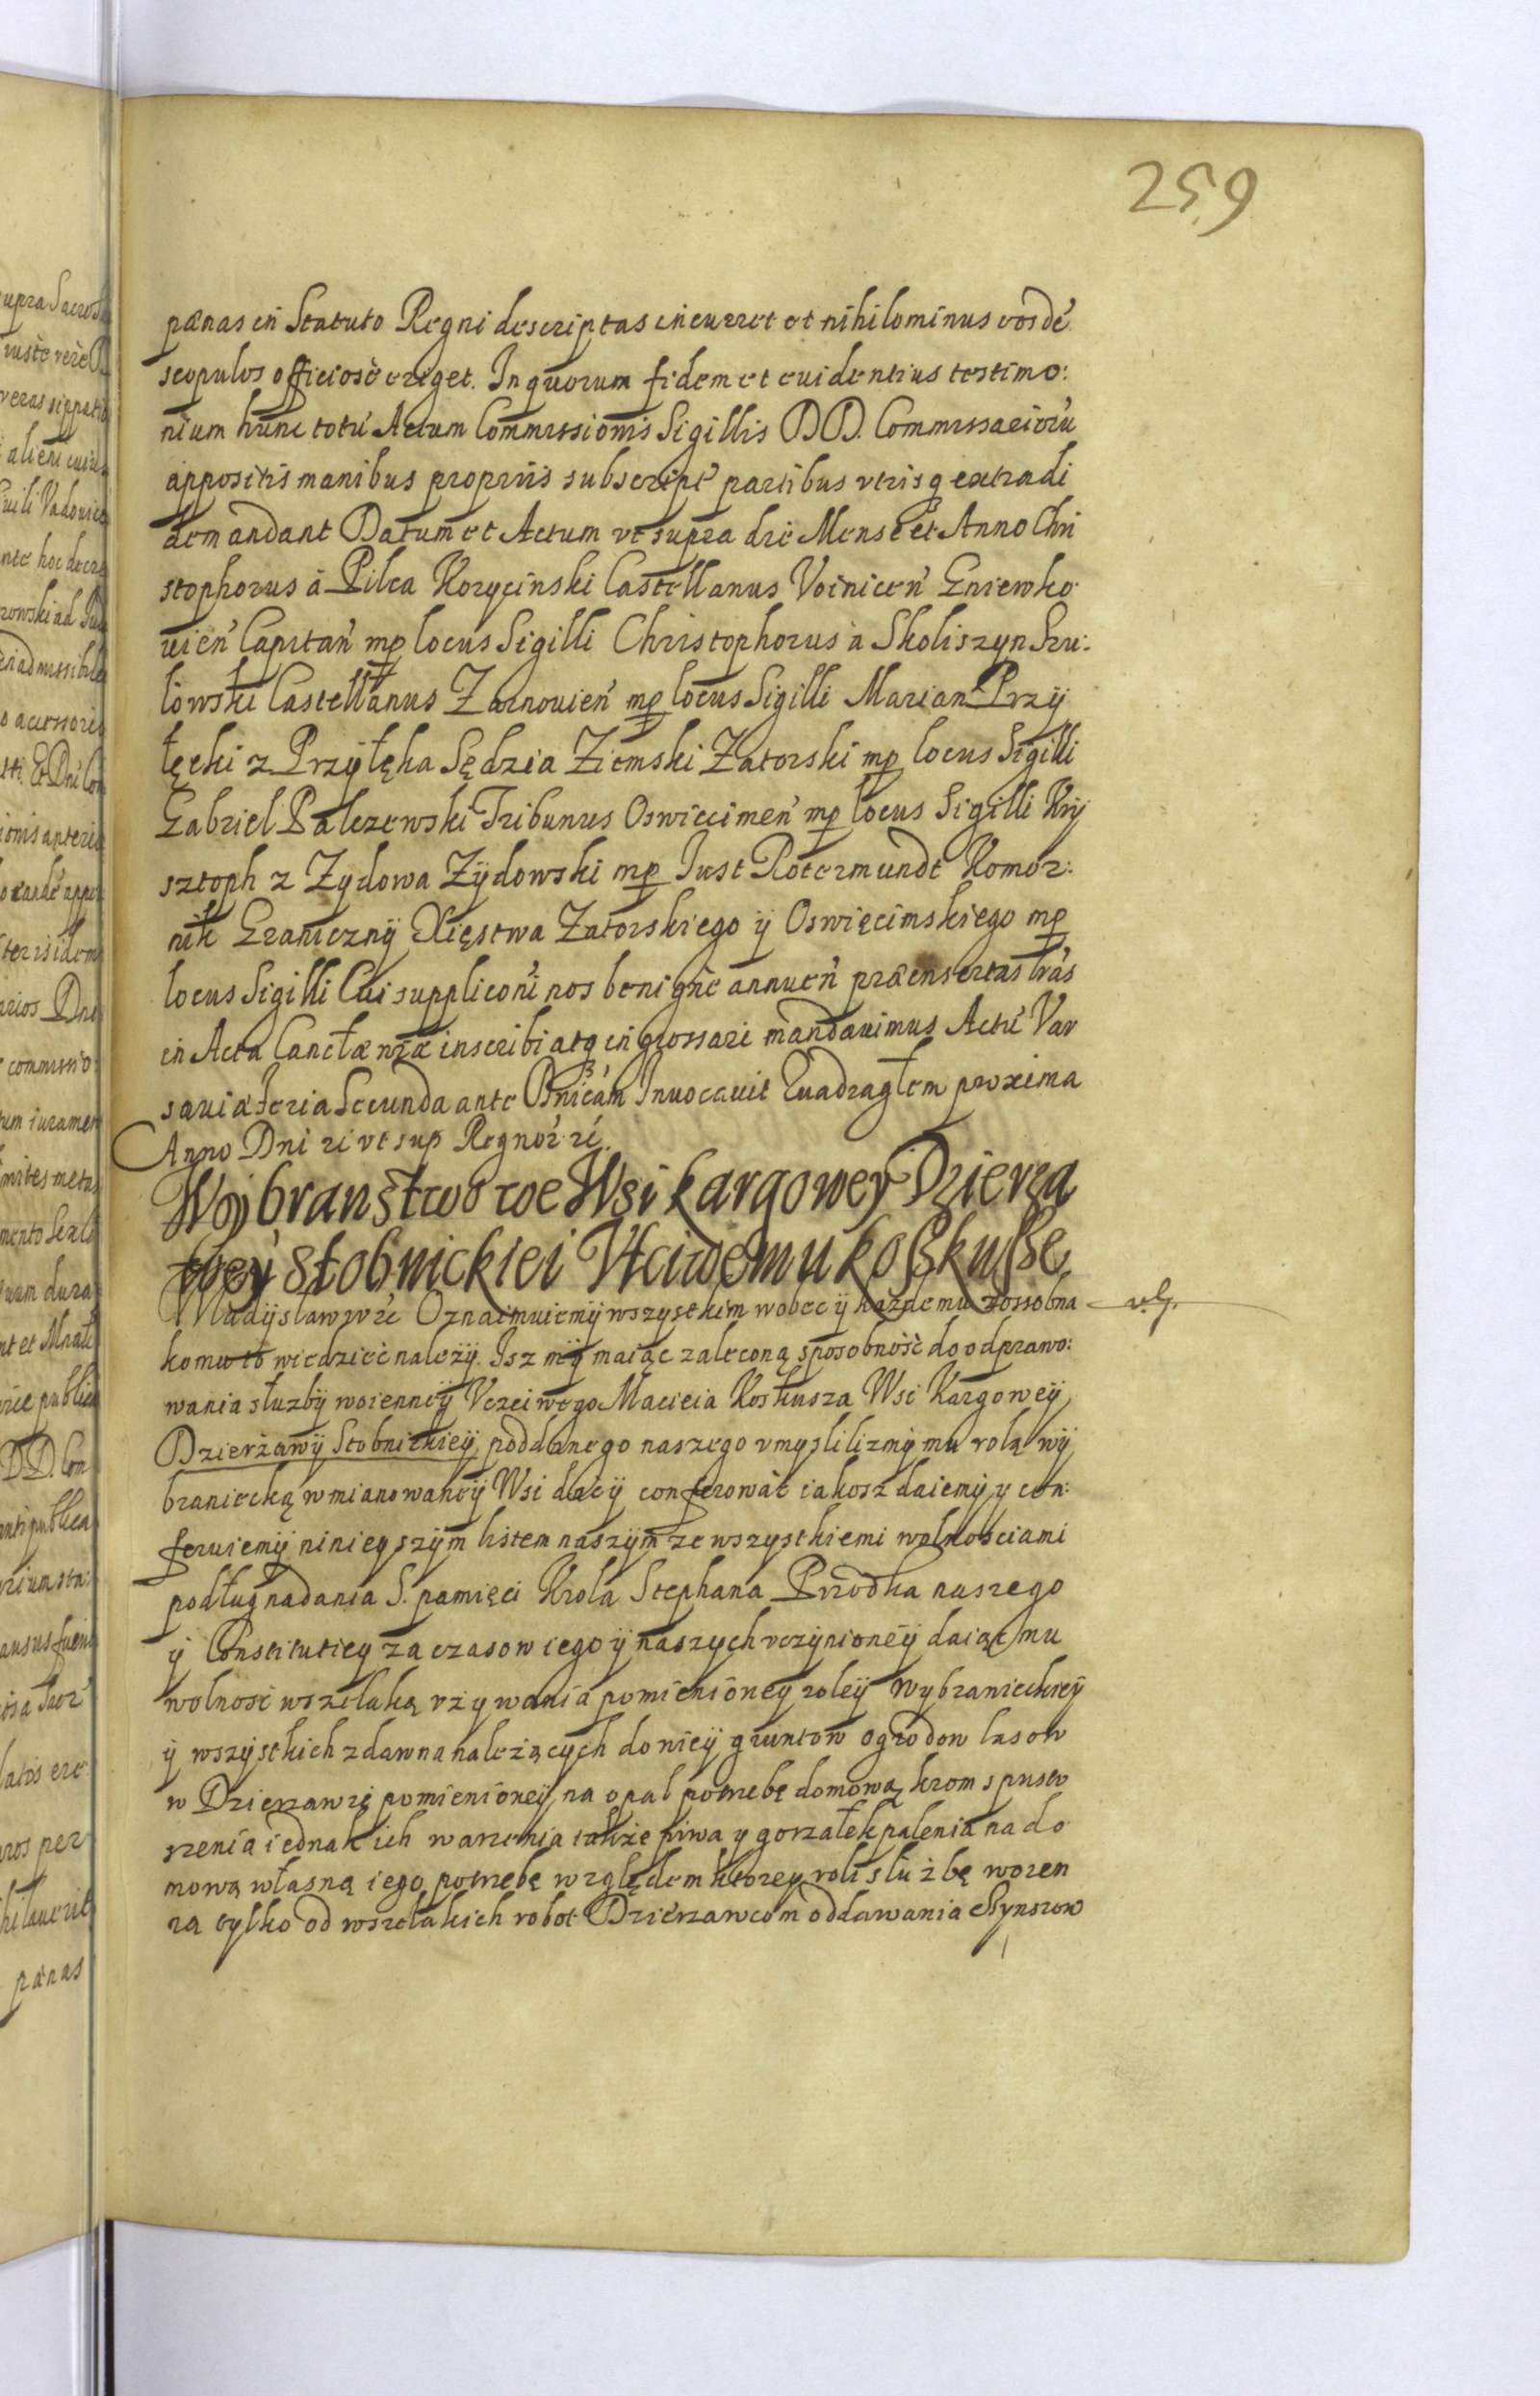 259
pænas in Statuto Regni descriptas incurret et nihilominus eosdé
scopulos officiosè eriget. In quorum fidem et euidentius testimo:
nium hunc totú Actum Commissionis Sigillis DD. Commissarioru
appositis manibus proprijs subscript partibus vtrisq extradi
demandant Datum et Actum vt supra die Mense et Anno Chri
stophorus á Pilca Korycinski Castellanus Voinicen Gniewko
uien Capitan mp locus Sigilli Christophorus a Skoliszyn Stu:
lowski Castellanus Zarnouien mp locus Sigilli Marian Przy
łęcki z Przyłęka Sędzia Ziemski Zatorski mp locus Sigilli
Gabriel Palczewski Tribunus Oswiecimen mp locus Sigilli Krÿ
sztoph z Zydowa Zÿdowski mp Just Rotermundt Komor:
nik Granicznÿ Xięstwa Zatorskiego ÿ Oswięcimskiego mp
locus Sigilli Cui supplicoñi nos benigne annueñ præinsertas lras
in Acta Cancłæ nræ inscribi atq ingrossari mandauimus Actú Var
sauiæ feria Secunda ante Dnicam Inuocauit Quadragłem proxima
Anno Dni ri vt sup Regnor ri.
Wÿbranstwo we Wsi kargowey Dzierza
wey stobnickiei Vtciwemu koßkuße
Wladÿsław wżc Oznaimuiemÿ wszystkim wobec ÿ każdemu zossobna
v.g.
komu to wiedzieć należÿ. Isz mÿ maiąc zaleconą sposobność do odprawo:
wania służbÿ woienneÿ Vczciwego Macieia Koskusza Wsi Kargoweÿ
Dzierżawÿ Stobnickieÿ poddanego naszego vmyslilizmÿ mu rolą wÿ
braniecką w mianowaneÿ Wsi dacÿ conferowáć iakosz daiemÿ y con:
feruiemÿ ninieyszÿm listem naszÿm ze wszystkiemi wolnościami
podług nadania S. pamięci Krola Stephana Przodka naszego
ÿ Constitutiey za czasow iego ÿ naszych vczÿnioneÿ daiąc mu
wolnosć wszelaką vżywania pomienioney roleÿ wybranieckieÿ
ÿ wszÿstkich zdawna należących do nieÿ gruntow ogrodow lasow
w Dzierzawie pomienioneÿ na opał potrzebę domową krom spusto
szenia iednak ich warzenia także piwa y gorzałek palenia na do
mową własną iego potrzebę względem ktorey roli służbę woien
ną tylko od wszelakich robot Dzierzawcom oddawania Cÿnszow